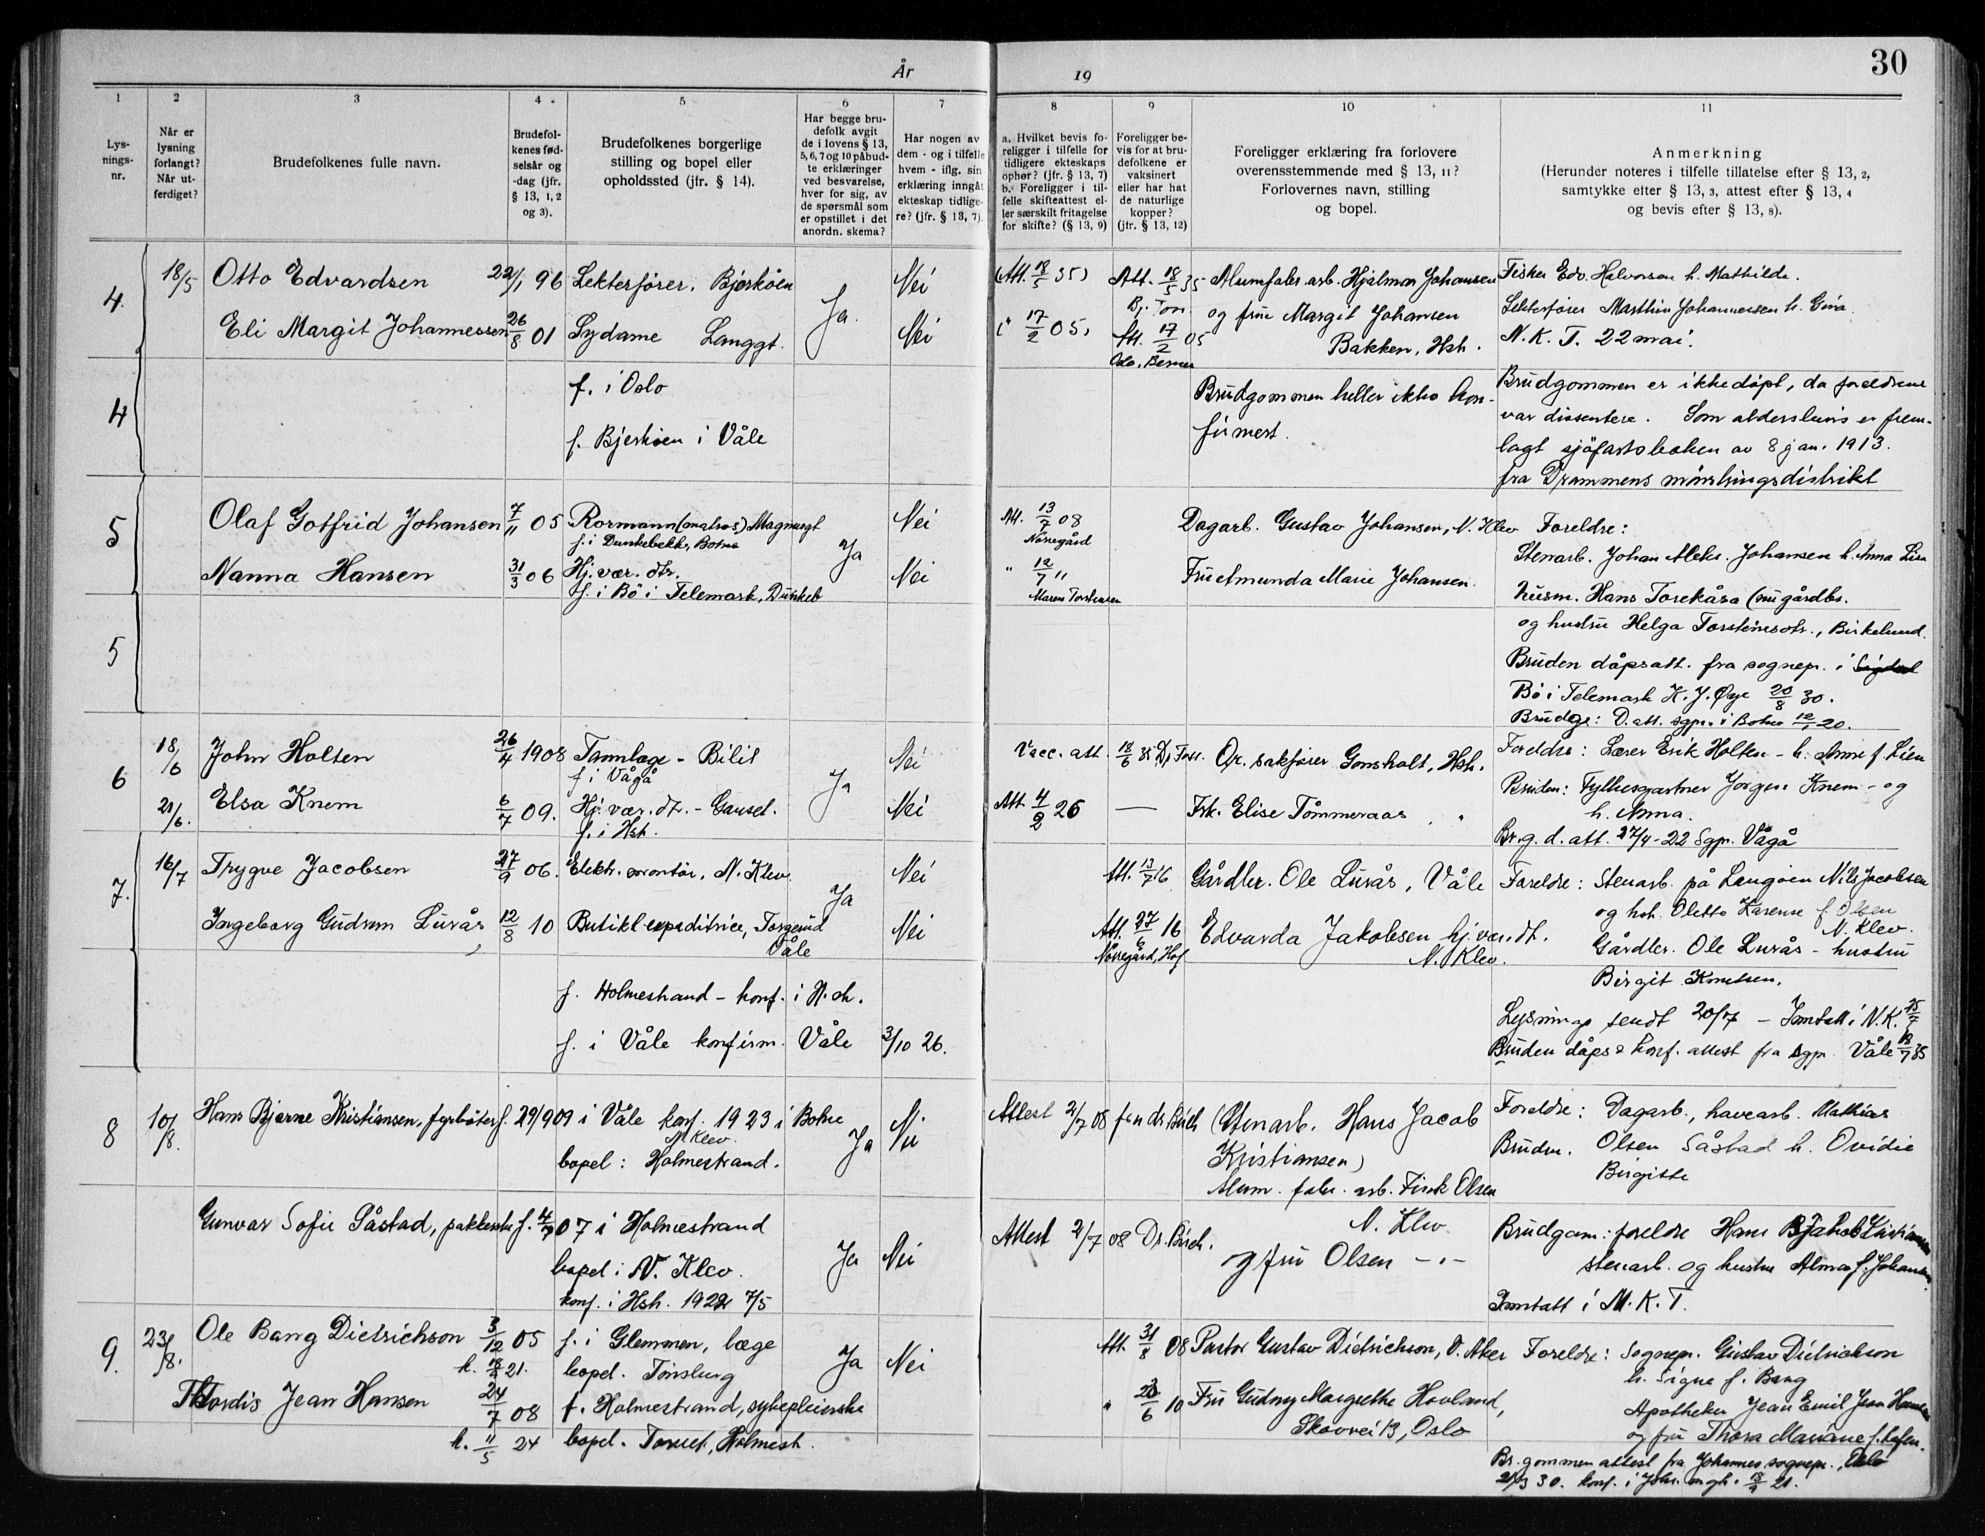 År
19
30
1
2
3
4
5
6
7
8
9
10
11
Lys-
nings-
nr.
Når er
lysning
forlangt?
Når ut-
ferdiget?
Brudefolkenes fulle navn.
Brudefol-
kenes fød-
selsår og
-dag (jfr.
§ 13, 1, 2
og 3).
Brudefolkenes borgerlige
stilling og bopel eller
opholdssted (jfr. § 14).
Har begge bru-
defolk avgit
de i lovens § 13,
5, 6, 7 og 10 påbud-
te erklæringer
ved besvarelse,
hver for sig, av
de spørsmål som
er opstillet i det
anordn. skema?
Har nogen av
dem - og i tilfelle
hvem - iflg. sin
erklæring inngåt
ekteskap tidlige-
re? (jfr. § 13, 7).
a. Hvilket bevis fo-
religger i tilfelle for
tidligere ekteskaps
ophør? (jfr. § 13, 7)
b. Foreligger i til-
felle skifteattest el-
ler særskilt fritagelse
for skifte? (§ 13, 9)
Foreligger be-
vis for at bru-
defolkene er
vaksinert
eller har hat
de naturlige
kopper?
(jfr. § 13, 12)
Foreligger erklæring fra forlovere
overensstemmende med § 13, 11?
Forlovernes navn, stilling
og bopel.
Anmerkning
(Herunder noteres i tilfelle tillatelse efter § 13, 2,
samtykke efter § 13, 3, attest efter § 13, 4
og bevis efter § 13, 8).
4. 18/5 Otto Edvardsen 22/1 96 Lekterfører. Bjerkøen Ja. Nei (Att. 18/5 35) Att. 18/5 35 Alumfabr. arb. Hjalmar Johansen Fisker Edv. Halvorsen h. Mathilde.
Eli Margit Johannessen 26/8 01 Sydame Langgt. Nei 17/2 05) Att. 17/2 05 og frue Margit Johansen Lekterfører Marthin Johannessen h. Gina
Bakken, Hsh. N. K. T. 22 mai.
4 f. i Oslo Brudgommen heller ikke kon- Brudgommen er ikke døpt, da foreldrene
firmert. var dissentere. Som aldersbevis er frem-
f. Bjerkøen i Våle lagt sjøfartsboken av 8 jan. 1913.
fra Drammens mønstringsdistrikt
5 Olaf Gotfrid Johansen 7/11 05 Rormann (matros) Magnusgt Ja Nei Att. 13/7 08 Dagarb. Gustav Johansen, N. Klev Foreldre:
f. i Dunkebekk, Botne Nøisegård Stenarb. Johan Aleks. Johansen h. Anna Lien
Nanna Hansen 31/3 06 Hj. vær. dtr. Nei " 12/7 " Frue Amunda Marie Johansen. husm. Hans Torekåsa (nu gårdbr.
f. i Bö i Telemark, Dunkeb og hustru Helga Torsteinsdtr., Birkelund.
5 Bruden dåpsatt. fra sognepr. i Sigdal
Bö i Telemark H. J. Øye 20/8 30.
Brudge: D. att. sgpr. i Botne 12/1 20.
6 18/6 John Holten 26/4 1908 Tannlæge - Bilit Ja Nei Vacc. att. 18/6 35 Or. sakfører Gonsholt, Hsh. Foreldre: Lærer Erik Holten - h. Anne f. Lien
f. i Vågå
21/6. Elsa Knem 6/7 09. Hj. vær. dtr. - Gauset. Nei Att 4/2 26 — Frk. Elise Tømmeraas " Bruden: Fylkesgartner Jørgen Knem - og
f. i Hsh. h. Anna.
Br.g. d. att. 27/4-22 Sgpr. Vågå
7. 16/7 Trygve Jacobsen 27/9 06. Elektr. montør, N. Klev. Ja Nei Att. 13/7 16 Gårdbr. Ole Lurås, Våle Foreldre: Stenarb. på Langøen Nils Jacobsen
og hst. Oletta Karense f. Olsen
Ingeborg Gudrun Lurås 12/8 10 Butikkexpeditrice, Torgerud Nei Att. 27/6 16 Edvarda Jakobsen hj. vær. dt. N. Klev.
Våle Nøisegård, Hof N. Klev. Gårdbr. Ole Lurås - hustru
Birgit Knutsen.
f. Holmestrand - konf. i H. st. Lysning sendt 20/7 - Inntatt i N. K. 25/7
f. i Våle konfirm. Våle 3/10 26. Bruden dåps & konf. attest fra sgpr. Våle 18/7 35
8 10/8. Hans Bjarne Kristiansen, fyrbøter f. 29/9 09 i Våle konf. 1923 i Botne Ja Nei Attest 2/7 08 fra dr. Birch (Stenarb. Hans Jacob Foreldre: Dagarb., havearb. Mathias
N. Klev. Kristiansen) Bruden. Olsen Såstad h. Ovidie
bopel: Holmestrand. Alum. fabr. arb. Fink Olsen Birgitte
Gunvar Sofie Såstad, pakkerske f. 4/7 07 i Holmestrand Ja Nei Attest 2/7 08 Dr. Birch. N. Klev Brudgom: foreldre Hans Jakob Kristiansen
bopel i N. Klev. og fru Olsen - " - stenarb. og hustru Alma f. Johansen.
konf. i Hsh. 1922 7/5 Inntatt i M. K. T.
9. 23/8. Ole Bang Dietrichson 3/12 05 f. i Glemmen, læge Ja Nei Att. 31/8 08 Pastor Gustav Dietrichson, V. Aker Foreldre: Sognepr. Gustav Dietrichson
k. 18/9 21. bopel. Tønsberg h. Signe f. Bang
Thordis Jean Hansen 24/7 08 f. Holmestrand, sykepleierske " 23/6 10 Fru Gudny Margrethe Hovland, Apotheker Jean Emil Jean Hansen
k. 11/5 24 bopel. Torvet, Holmest. Skovvei 13, Oslo og fru Thora Mariane f.
Br.gommen attest fra Johannes sognepr., Oslo
30. konf. i Joh. mgh. 18/9 21.